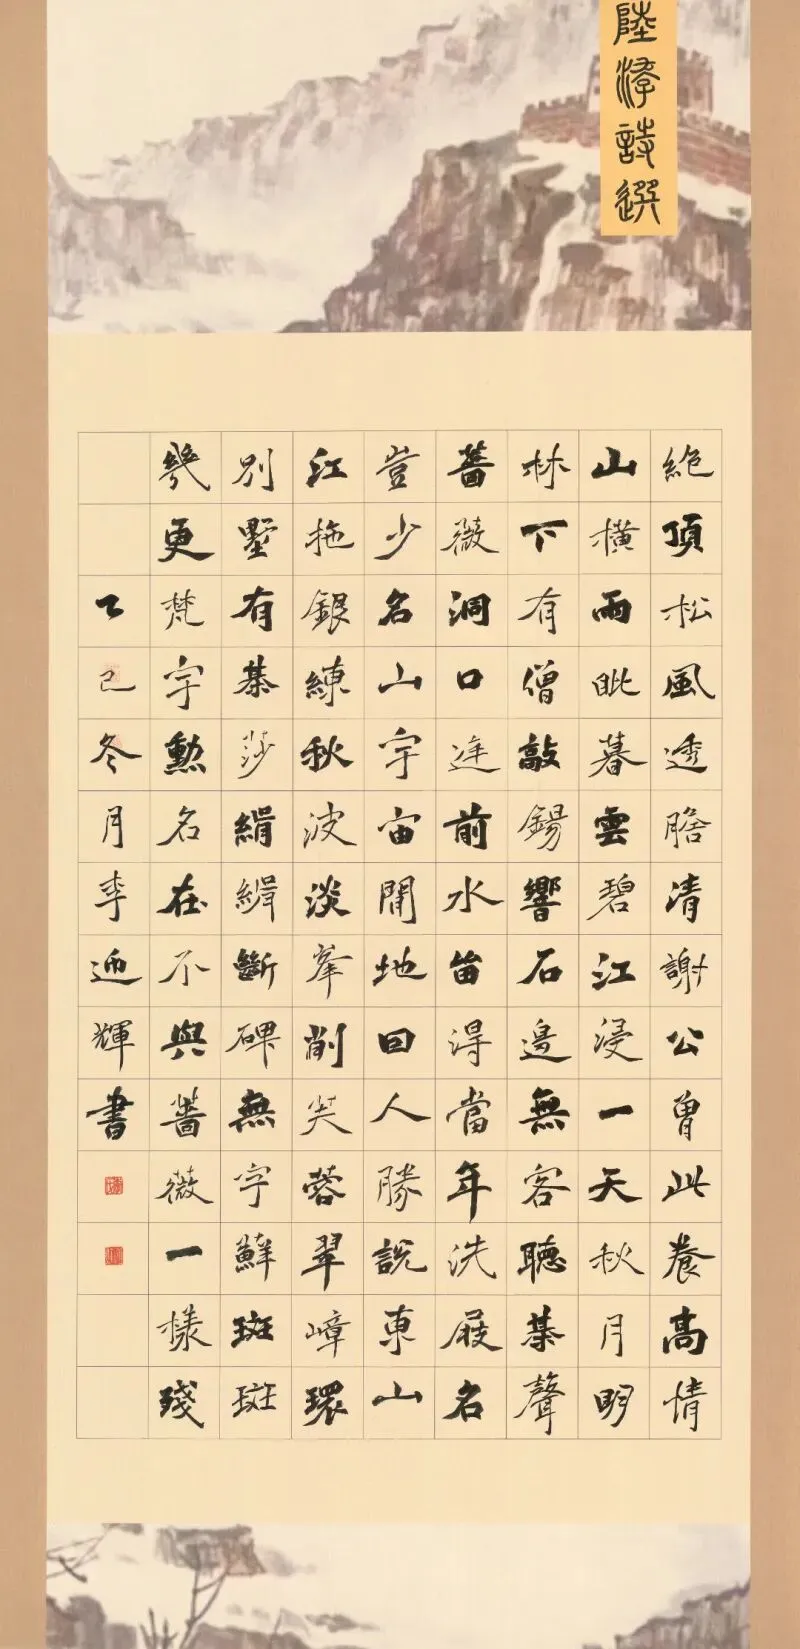 陸游詩選
絕頂松風透膽清謝公曾此養高情
山橫雨眦暮雲碧江浸一天秋月明
林下有僧敲錫響石邊無客聽棊聲
薔薇洞口迮前水留得當年洗屐名
豈少名山宇宙間地回人勝說東山
江拖銀練秋波淡峯削芙蓉翠嶂環
別墅有棊莎緝緝斷碑無字蘚斑斑
幾更梵宇勳名在不與薔薇一樣殘
乙巳冬月李迎輝書